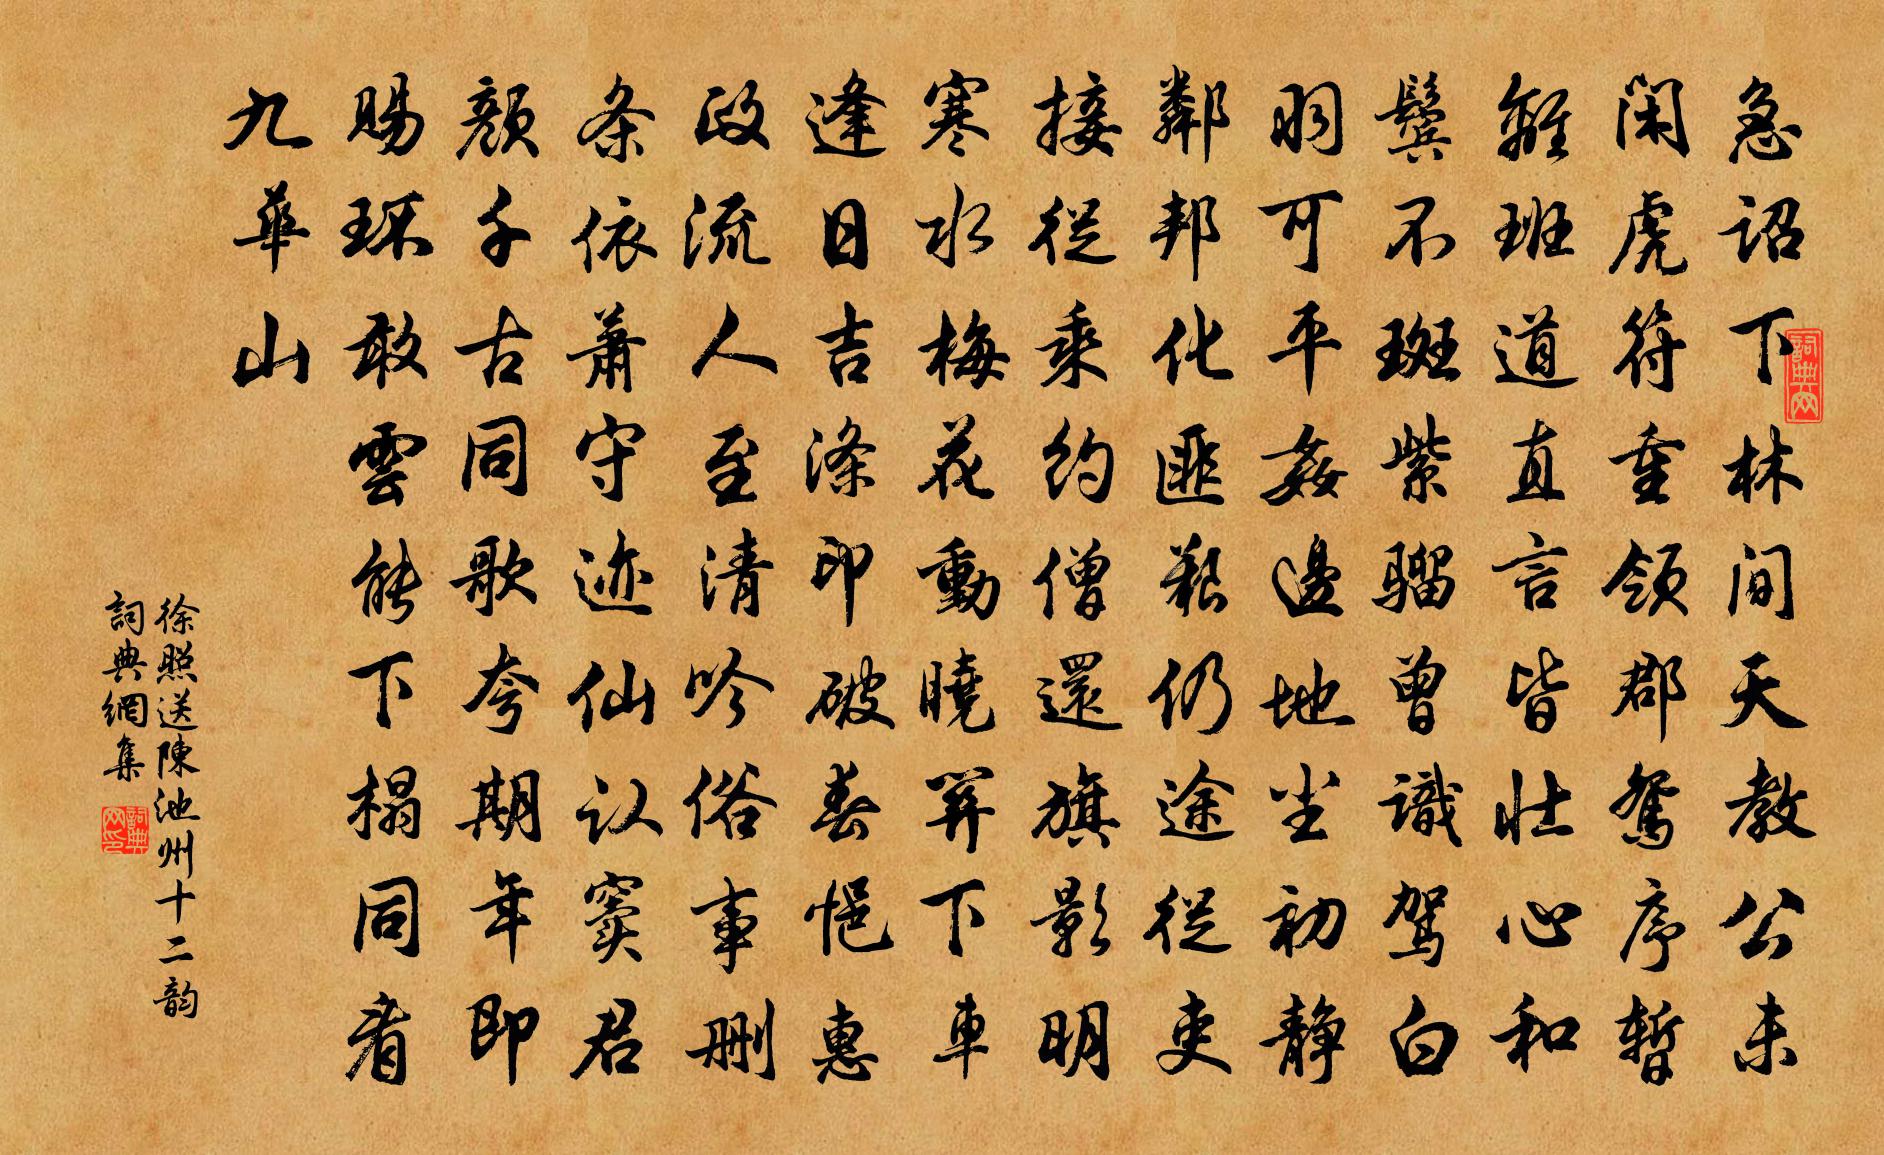 急詔下林間天教公未
閑虎符重領郡鴛序暫
離班道直言皆壮心和
鬢不斑紫騮曾識駕白
羽可平姦邊地尘初静
鄰邦化匪艱仍途從吏
接從乘約僧還旗影明
寒水梅花動曉笄下車
逢日吉滌印破春慳惠
政流人至清吟俗事刪
条依萧守迹仙认窦君
顏千古同歌夸期年即
賜环敢雲能下榻同看
九華山
徐照送陳池州十二韵
詞典網集
詞典网
詞典网印